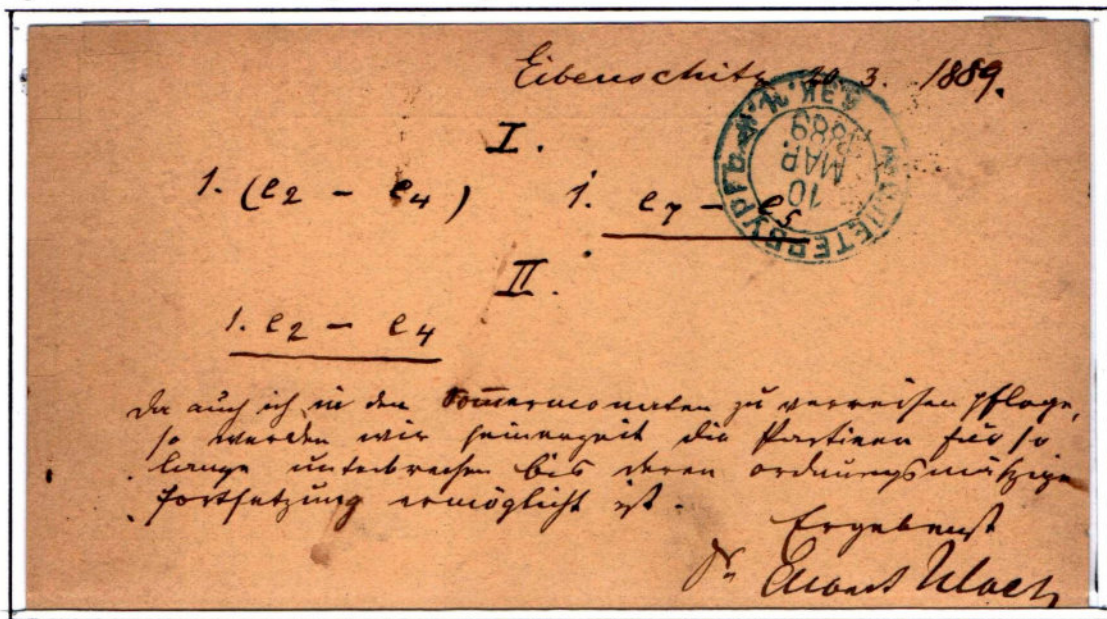 Eibenschitz 20. 3. 1889.
10
МАР.
1889
I.
1. (e2 – e4) 1. e7 – e5
II.
1. e2 – e4
Da auch ich in den Som̅ermonaten zu verreisen pflege,
so werden wir seinerzeit die Partieen für so
lange unterbrechen bis deren ordnungsmäßige
Fortsetzung ermöglicht ist.
Ergebenst
Dr.